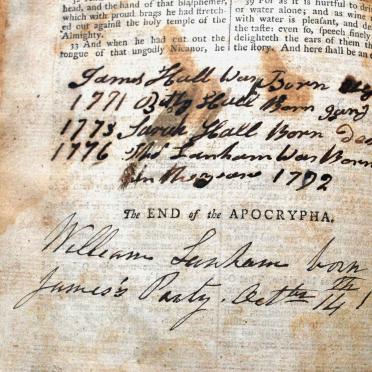 head, and the hand of that blasphemer,
which with proud brags he had stretch-
ed out against the holy temple of the
Almighty.
33 And when he had cut out the
tongue of that ungodly Nicanor, he
39 For as it is hurtful to drin
or water alone; and as wine
with water is pleasant, and de
the taste: even so, speech finely
delighteth the ears of them th
the story. And here shall be an e
James Hall Was Born
1771 Betty Hall Born
1773 Sarah Hall Born Dec
1776 Thos Lanham Was Born
in the year 1792
The END of the APOCRYPHA.
William Lanham born
James's Party. Octbr 14th 1